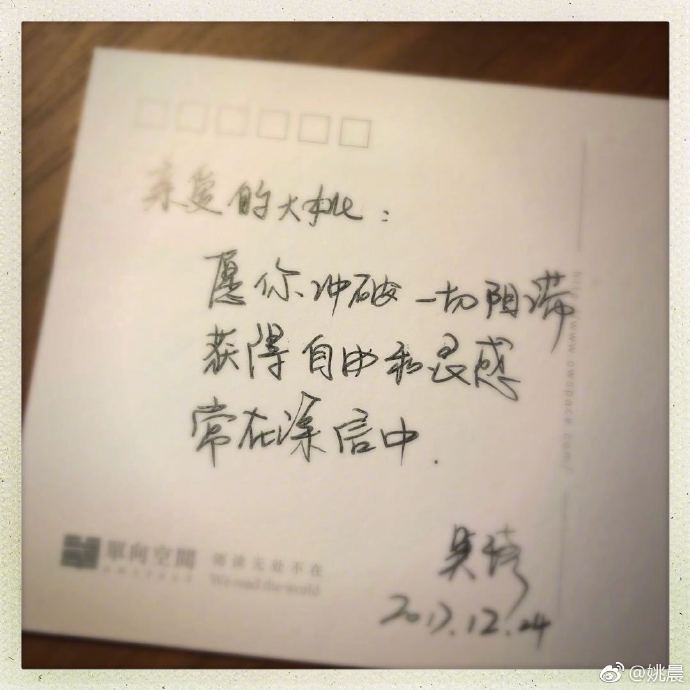 亲爱的大桃：
愿你冲破一切阻滞
获得自由和灵感
常在深信中.
吴琦
2017.12.24
單向空間
OWSPACE
阅读无处不在
We read the world
http://www.owspace.com/
@姚晨